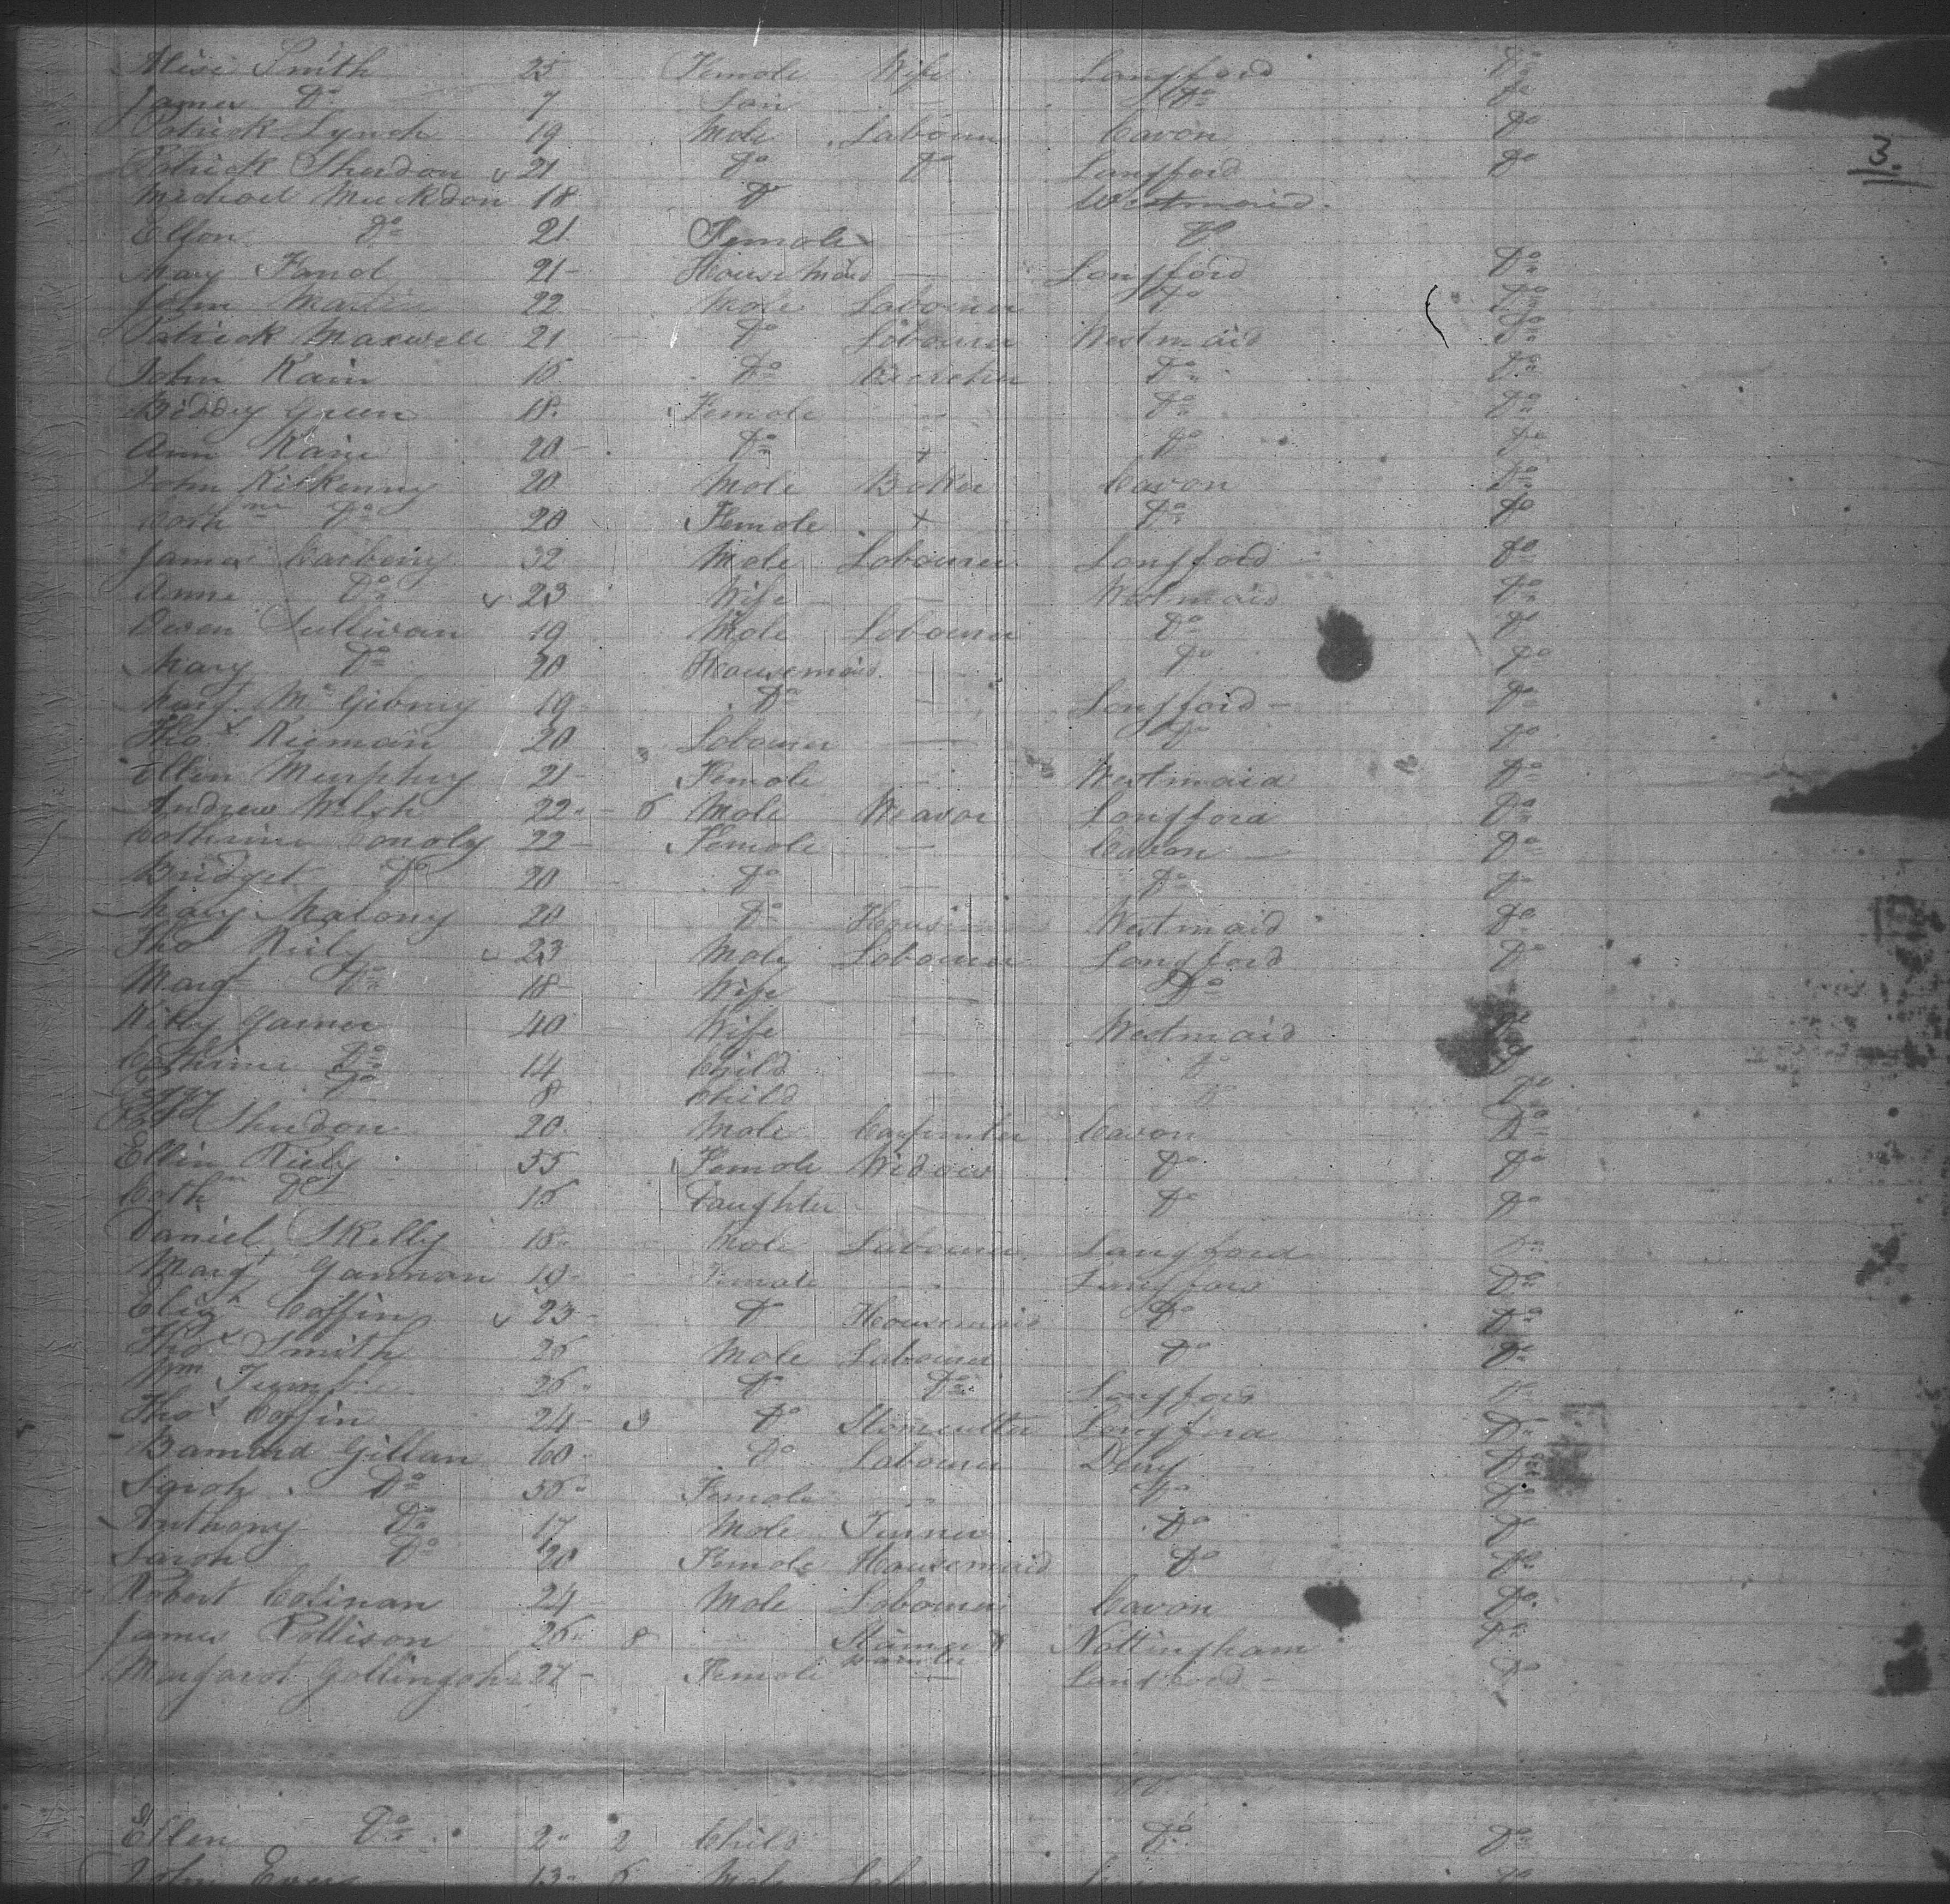 Alice Smith 25 Female Wife Longford Do
James Do 7 Son — Do Do
Patrick Lynch 19 Male Labourer Cavan Do
Patrick Sheridon 21 Do Do Longford Do
3.
Michael Muckdon 18 Do Westmaid
Ellon Do 21 Female Do
Mary 21 Housemaid — Longford Do
John Martin 22 Male Labourer Do Do
Patrick Maxwell 21 Do Labourer Westmaid Do
John Kain 16 Do Do Do
Biddy Green 18 Female — Do Do
Ann Kain 20 Do Do Do
John Kilkenny 20 Male Cavan Do
Cathne Do 20 Female + Do Do
James Carberry 32 Male Labourer Longford Do
Anne Do 23 Wife — Westmaid Do
Owen Sullivan 19 Male Labourer Do Do
Mary Do 20 Housemaid — Do Do
Margt McGibney 19 Do — Longford Do
Thos Kieman 20 Labourer — Do Do
Ellen Murphy 21 Female — Westmaid Do
Andrew Welsh 22 Male Weavor Longford Do
Catherine Conoly 22 Female — Cavan Do
Bridget Do 20 Do — Do Do
Mary Malony 20 Do Westmaid Do
Thos Riely 23 Male Labourer Longford Do
Margt Do 18 Wife — Do Do
Kitty Garner 40 Wife — Westmaid Do
Catherine Do 14 Child — Do Do
Do 8 Child — Do Do
Patt Sheridon 20 Male Carpenter Cavan Do
Ellin Riely 55 Female Widow Do Do
Cathn Do 16 Daughter — Do Do
Daniel Skelly 18 Male Labourer Langford Do
Margt Gannon 19 Female — Longford Do
Elizth Coffin 23 Do Housemaid Do Do
Thos Smith 26 Male Labourer Do Do
Wm 26 Do Do Longford Do
Thos Coffin 24 3 Do Stonecutter Longford Do
Barnard Gillan 60 Do Labourer Derry Do
Sarah Do 56 Female Do Do
Anthony Do 17 Male Do Do
Sarah Do 20 Female Housemaid Do Do
Robert Colinan 24 Male Labourer Cavan Do
James Rollison 26 8 Nottingham Do
Margarot 27 Female — Longford Do
Ellen Do 2 2 Child Do Do
John 13 6 Male